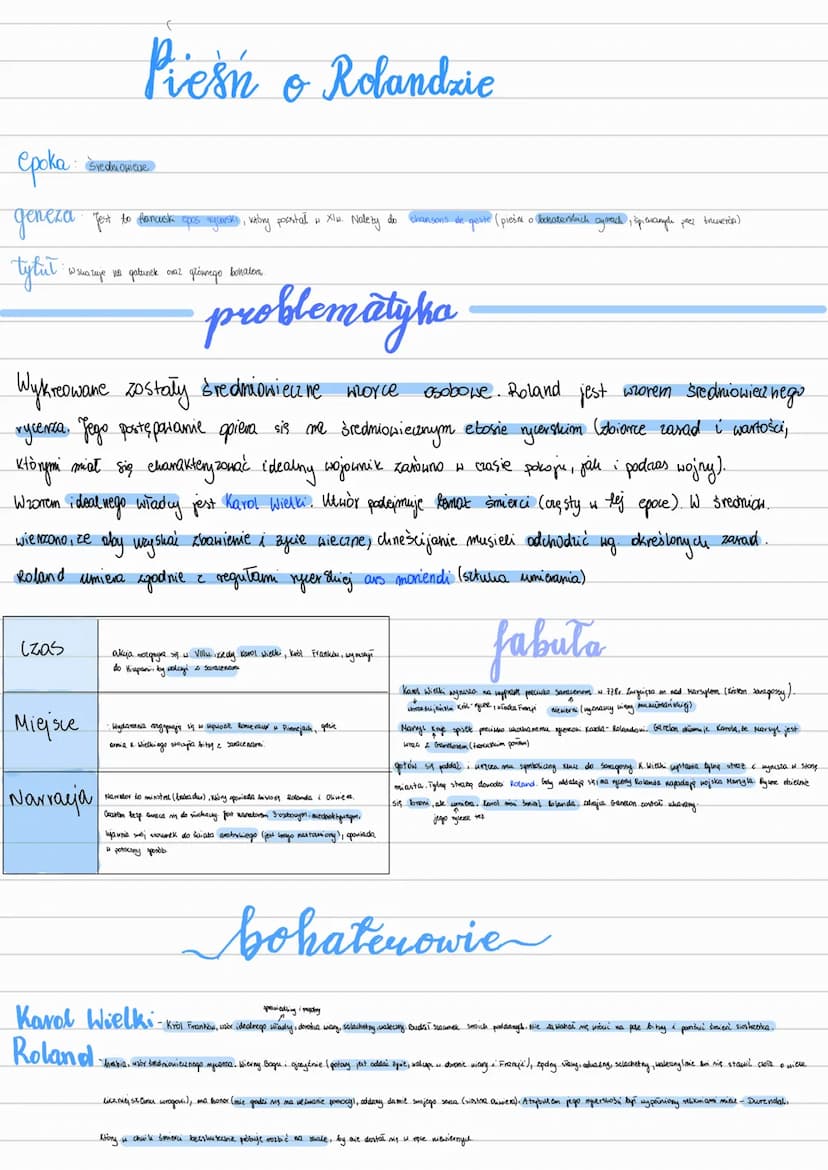 Pieśń o Rolandzie
epoka: średniowiecze
geneza: Jest to francuski epos rycerski, który powstał w XIw. Należy do chansons de geste (pieśni o bohaterskich czynach, śpiewanych przez truwerów)
tytuł: Wskazuje na gatunek oraz głównego bohatera
problematyka
Wykreowane zostały średniowieczne wzorce osobowe. Roland jest wzorem średniowiecznego
rycerza. Jego postępowanie opiera się na średniowiecznym etosie rycerskim (zbiorze zasad i wartości,
którymi miał się charakteryzować idealny wojownik zarówno w czasie pokoju, jak i podczas wojny).
Wzorem idealnego władcy jest Karol Wielki. Utwór podejmuje temat śmierci (częsty w tej epoce). W średniow.
wierzono, że aby uzyskać zbawienie i życie wieczne, chrześcijanie musieli odchodzić wg określonych zasad.
Roland umiera zgodnie z regułami rycerskiej ars moriendi (sztuka umierania)
Czas
akcja rozgrywa się w VIIIw. kiedy Karol Wielki, król Franków, wyruszył
do Hiszpanii by walczyć z Saracenami
Miejsce
Wydarzenia rozgrywają się w wąwozie Roncevaux w Pirenejach, gdzie
armia K. Wielkiego stoczyła bitwę z saracenami
Narracja
Narrator to minstrel (trubadur), który opowiada historię Rolanda i Oliwiera.
Czasem bezp. zwraca się do słuchaczy. Jest narratorem 3-osobowym, nieobiektywnym,
ujawnia swój stosunek do świata
w potoczny sposób
fabuła
Karol Wielki wyrusza na wyprawę przeciwko Saracenom w 778r. Zwycięża on nad Marsylem (królem Saragossy).
chrześcijański król-rycerz i władca Francji
niewierni (wyznawcy wiary muzułmańskiej)
Marsyl knuje spisek przeciwko ukochanemu rycerzowi Karola - Rolandowi. Ganelon informuje Karola, że Marsyl jest
wraz z Ganelonem
gotów się poddać i wręcza mu symboliczny klucz do Saragossy. K. Wielki wystawia tylną straż i wyrusza w stronę
miasta. Tylną strażą dowodzi Roland. Gdy oddalają się, na rycerzy Rolanda napadają wojska Marsyla. Rycerze dzielnie
się bronią, ale umiera. Karol mści śmierć Rolanda. Zdrajca Ganelon został ukarany.
jego rycerze też
bohaterowie
sprawiedliwy i mądry
Karol Wielki - Król Franków, wzór idealnego władcy, obrońca wiary, szlachetny, waleczny. Budzi szacunek swoich poddanych. Nie zawahał się wrócić na pole bitwy i pomścić śmierć siostrzeńca.
Roland - hrabia, wzór średniowiecznego rycerza. Wierny Bogu i ojczyźnie (gotowy jest oddać życie, walcząc w obronie wiary i Francji), zdolny, silny, odważny, szlachetny, waleczny (nie boi się stawić czoła o wiele
liczniejszemu wrogowi), ma honor (nie godzi się na wezwanie pomocy), oddany damie swojego serca (siostra Oliwiera). Atrybutem jego rycerskości był wypełniony relikwiami miecz - Durendal,
który w chwili śmierci bezskutecznie próbuje rozbić na skale, by nie dostał się w ręce niewiernych